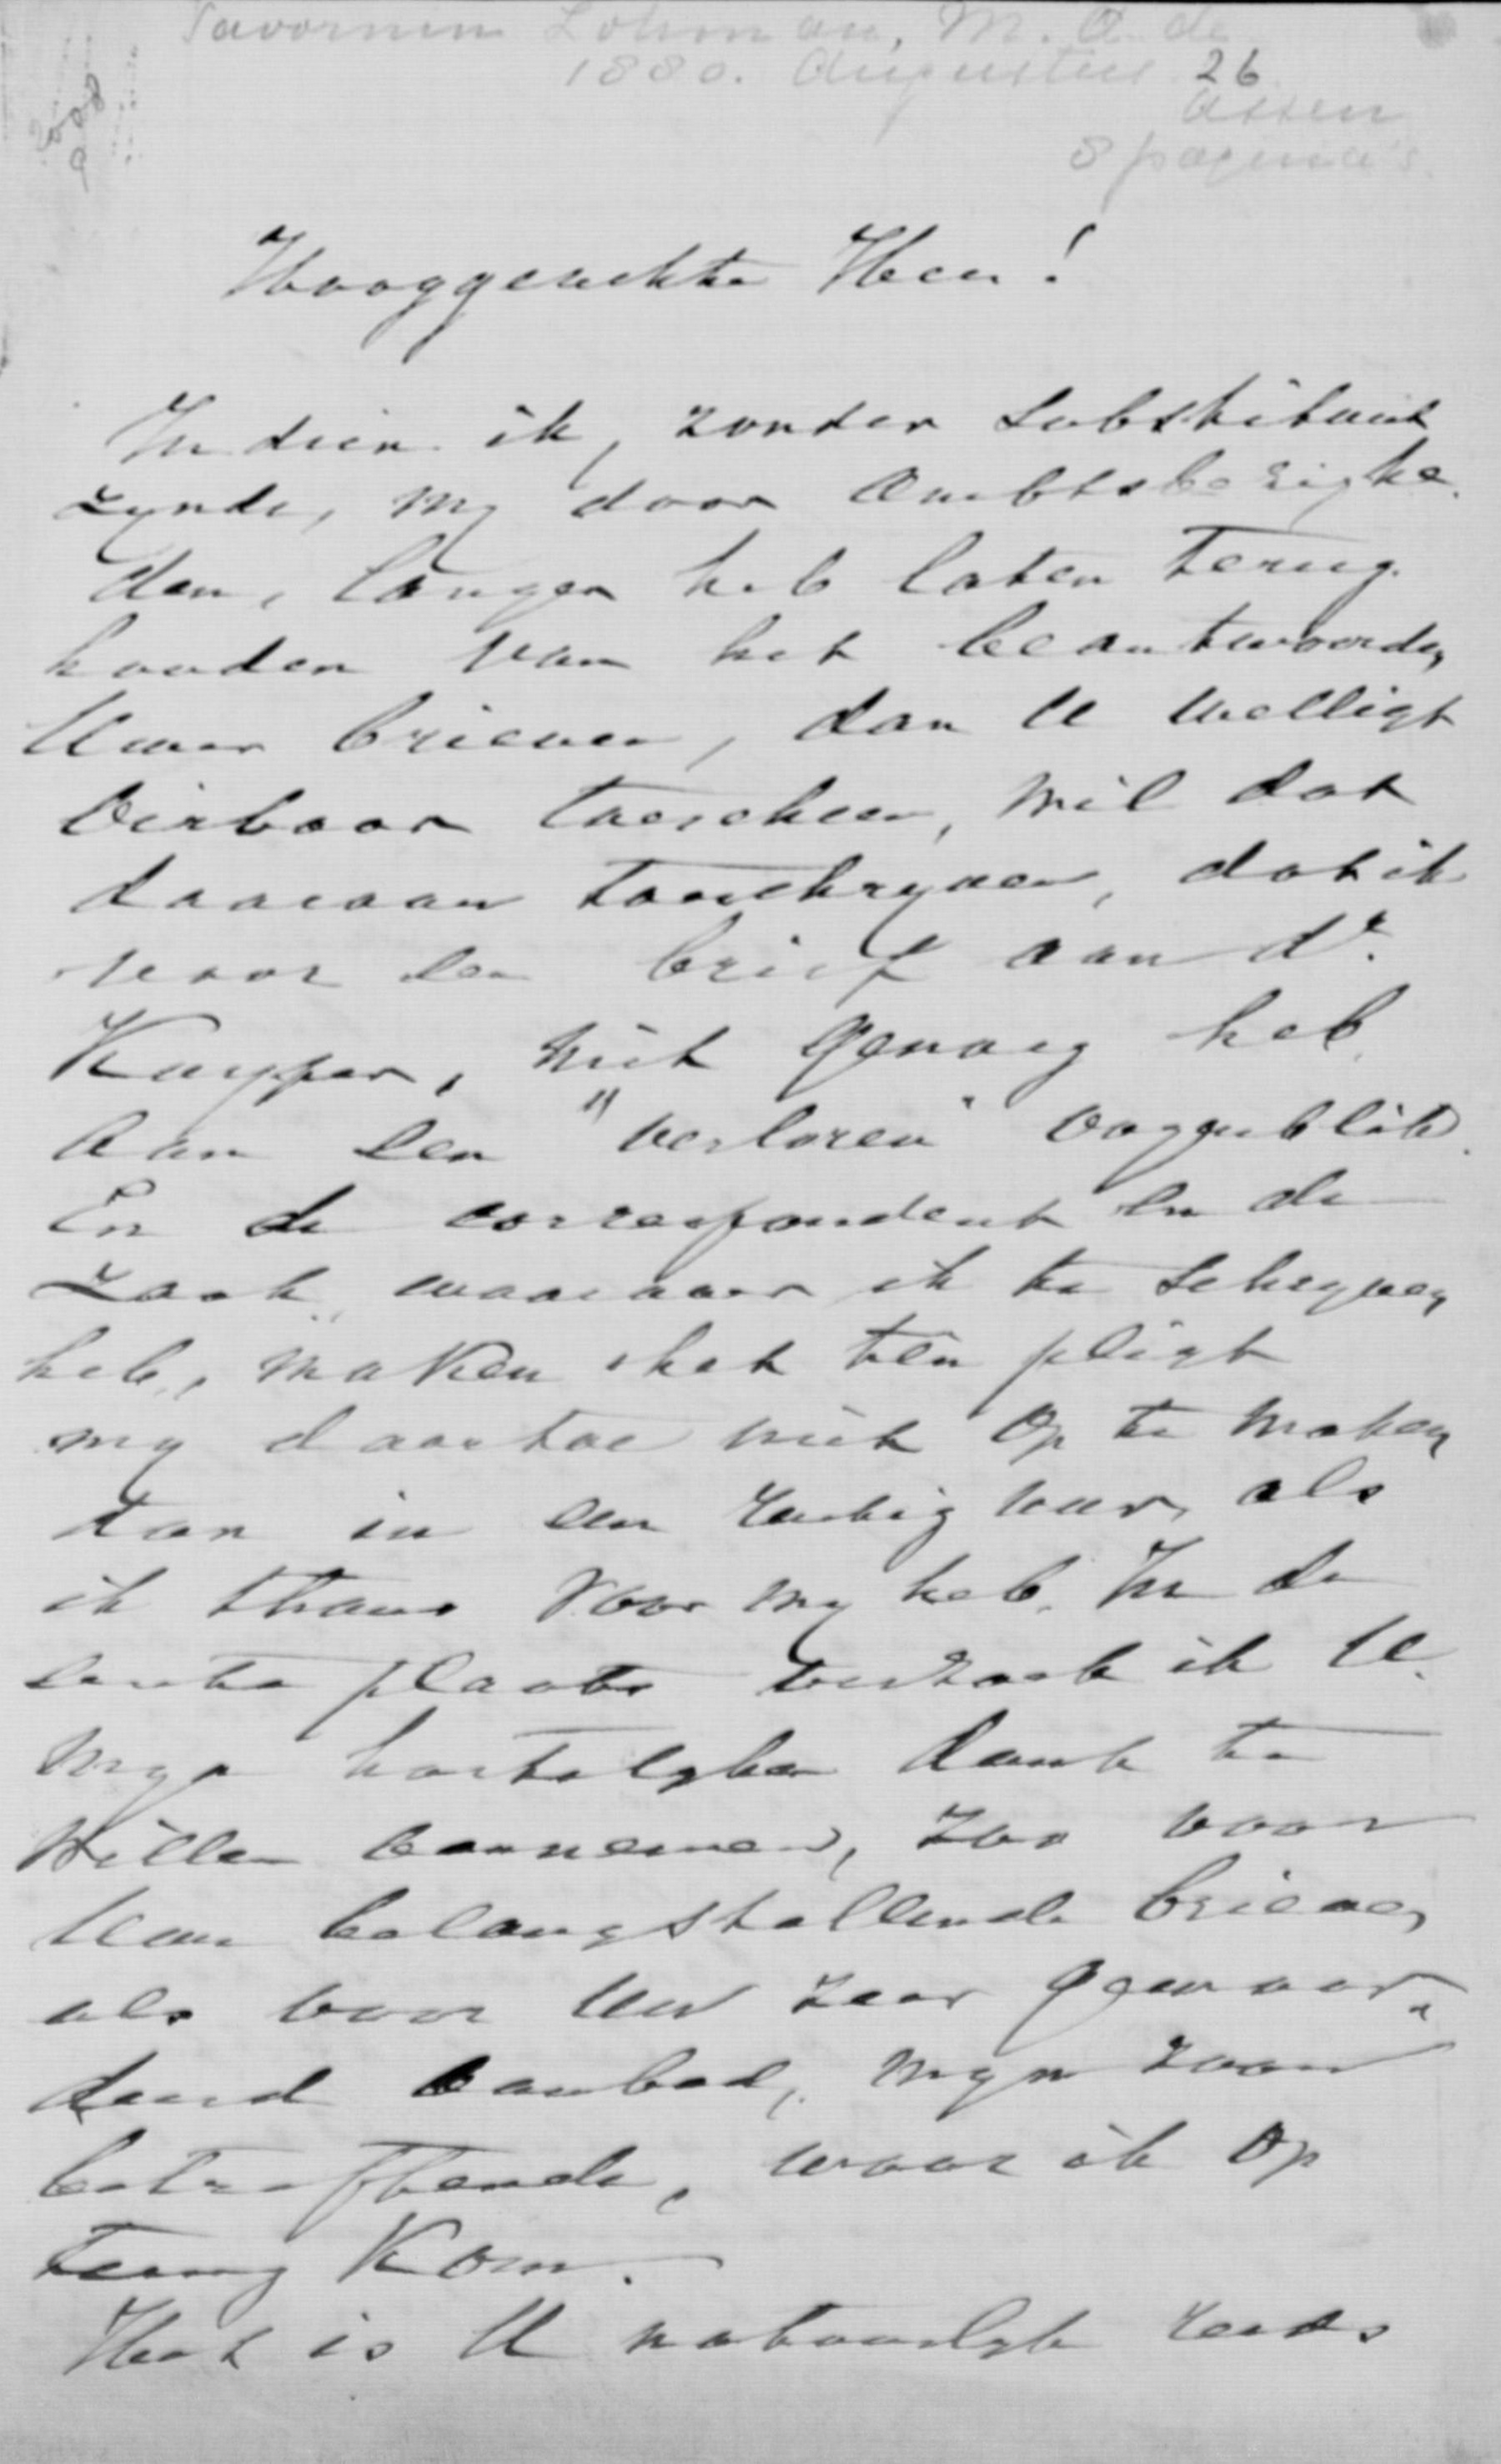 Savornin Lohman, M. A. de
1880. Augustus 26
Assen
8 pagina's
Hooggeachte Heer!
Indien ik, zonder Substituut
zynde, my door Ambtsbezighe
den, langer heb laten terug
houden van het beantwoorden
Uwer brieven, dan U welligt
oirbaar toescheen, wil dat
daaraan toeschryven, dat ik
voor den brief aan Dr.
Kuyper, niet genoeg heb
aan een "verloren" oogenblik.
En de correspondent en de
zaak waarover ik te schryven
heb, maken het ten pligt
my daartoe niet op te maken
dan in een rustig uur, als
ik thans voor my heb. In de
eerste plaats verzoek ik U
myn hartelyken dank te
willen aannemen, zoo voor
Uwe belangstellende brieven
als voor Uw zeer gewaar-
deerd aanbod, myn zoon
betreffende, waar ik op
terug kom.
Het is U natuurlyk reeds